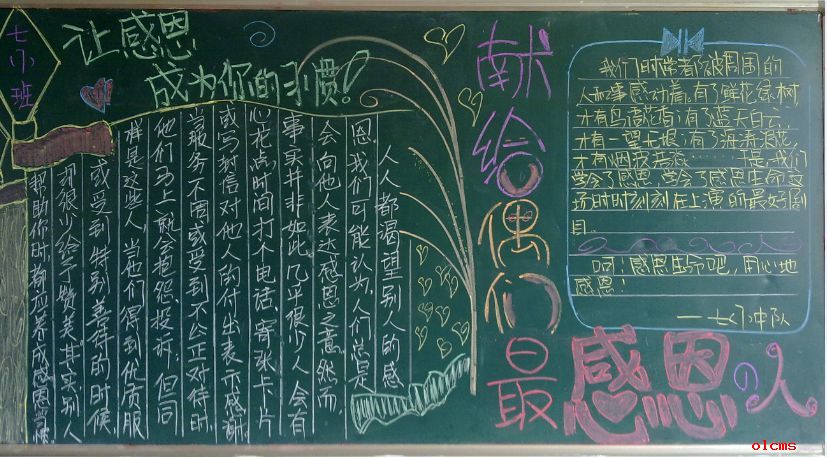 七(1)班
让感恩
成为你的习惯!
人人都渴望别人的感
恩。我们可能认为,人们总是
会向他人表达感恩之意。然而,
事实并非如此,几乎很少人会有
心花点时间打个电话、寄张卡片
或写封信对他人的付出表示感谢。
当服务不周或受到不公正对待时
他们马上就会抱怨、投诉;但同
样是这些人,当他们得到优质服
或受到特别善待的时候,
却很少给予赞美。其实别人
帮助你时,都应养成感恩习惯。
献给偶们
最感恩の人
我们时常都被周围的
人和事感动着。有了鲜花绿树,
才有鸟语花香;有了蓝天白云,
才有一望无垠;有了海涛浪花,
才有烟波浩淼……于是,我们
学会了感恩,学会了感恩生命这
场时时刻刻在上演的最好剧
目。
啊!感恩生命吧,用心地
感恩!
中队
olcms